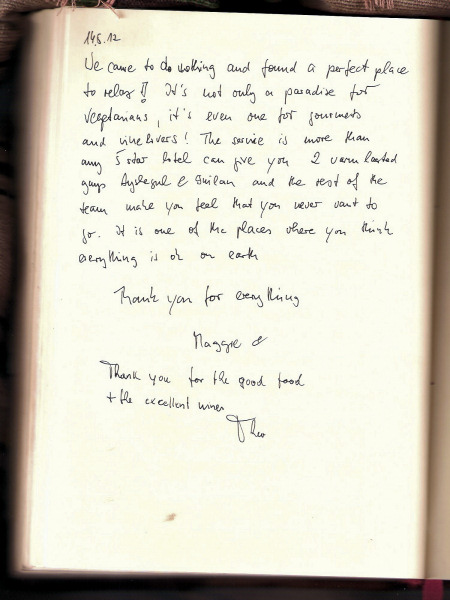 14.5.12
We came to do nothing and found a perfect place
to relax!! It's not only a paradise for
Vegetarians, it's even one for gourmets
and vinelovers! The service is more than
any 5 star hotel can give you 2 warm hearted
guys Aysegul & and the rest of the
team make you feel that you never want to
go. It is one of the places where you think
everything is ok on earth
Thank you for everything
Maggie &
Thank you for the good food
+ the excellent wines
Theo